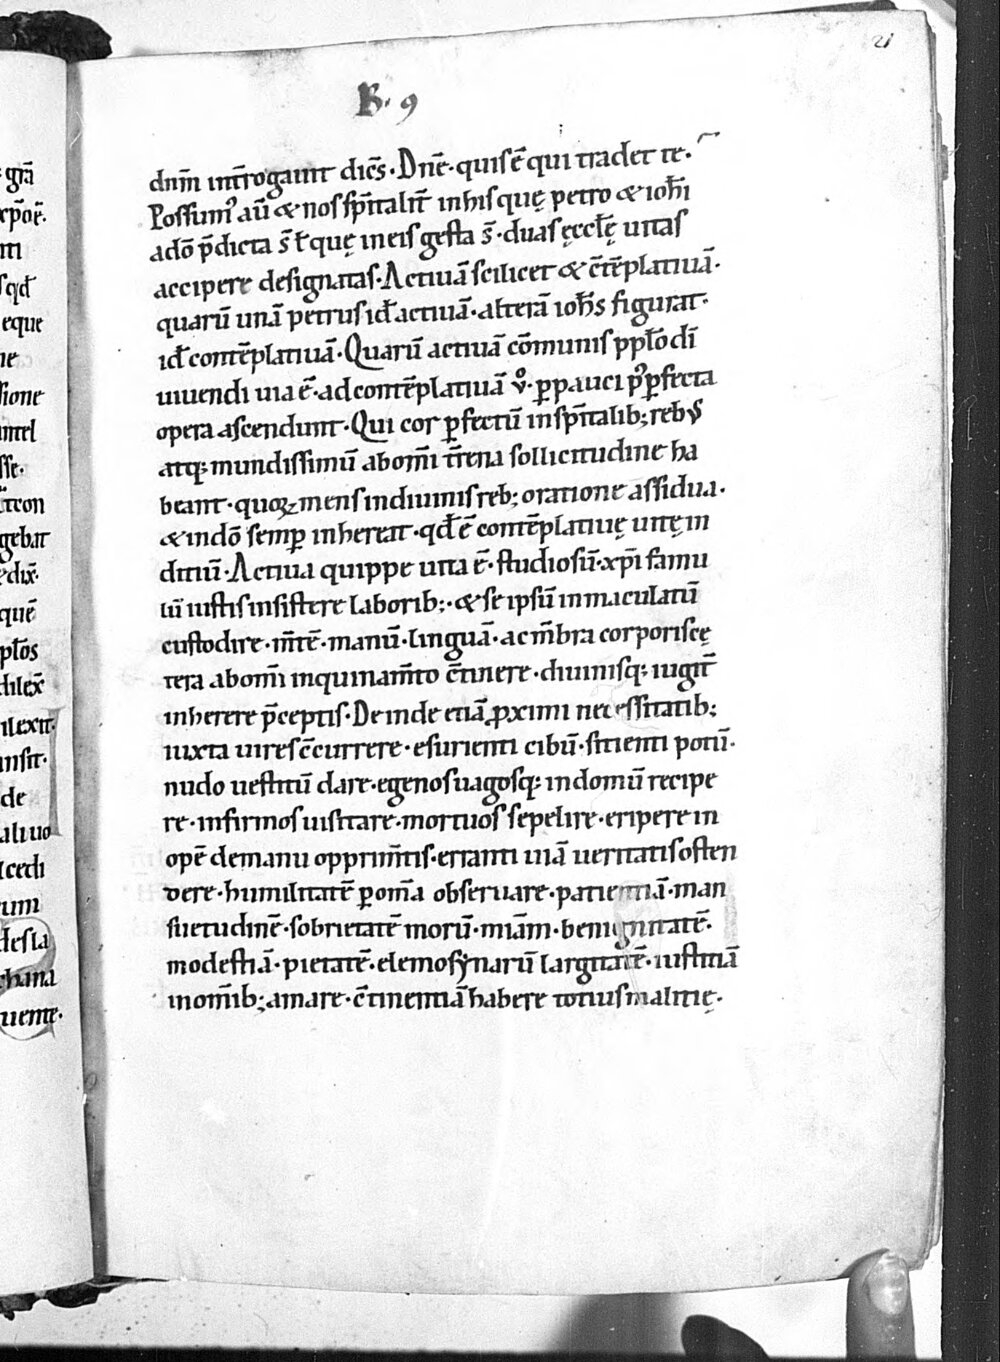 21
B. 9
dn̄m int̄rogauit dic̄s. Dn̄e. quis ē qui tradet te.
Possumꝰ aū & nos sp̄italit̄ in his quę petro & ioh̄i
a dō p̄dicta s̄ ł quę in eis gesta s̄. duas ęccłę uitas
accipere designatas. Actiuā scilicet & c̄tēplatiuā.
quarū unā petrus id ̄ actiuā. alterā ioh̄s figurat.
id ̄ contēplatiuā. Quarū actiuā cōmunis ppło dī
uiuendi uia ē. ad contēplatiuā ṽo ꝑpauci pꝰ ꝑfecta
opera ascendunt. Qui cor ꝑfectū in sp̄italib; rebꝰ
atq; mundissimū ab om̄i t̄rena sollicitudine ha
beant. quoꝝ mens in diuinis reb; oratione assidua.
& in dō semꝑ inhereat. qd ̄ ē contēplatiuę uitę in
ditiū. Actiua quippe uita ē. studiosū. xp̄i famu
lū iustis insistere laborib;. & se ipsū inmaculatū
custodire. m̄tē. manū. linguā. ac m̄bra corporis cę
tera ab om̄i inquinam̄to c̄tinere. diuinisq; iugit̄
inherere p̄ceptis. Deinde etiā ꝓximi necessitatib;
iuxta uires c̄currere. esurienti cibū. sitienti potū.
nudo uestitū dare. egenos uagosq; in domū recipe
re. infirmos uisitare. mortuos sepelire. eripere in
opē de manu opprim̄tis. erranti uiā ueritatis osten
dere. humilitatē ꝑ om̄a obseruare. patientiā. man
suetudinē. sobrietatē morū. mīam. benignitatē.
modestiā. pietatē. elemosynarū largitatē. iustitiā
in om̄ib; amare. c̄tinentiā habere totius malitię.